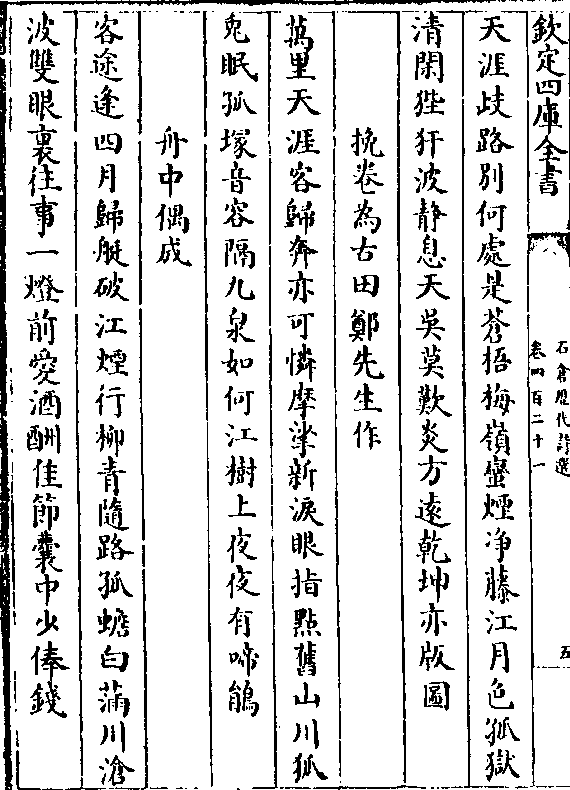 欽定四庫全書
石倉歷代詩選
卷四百二十一
五
天涯歧路別何處是蒼梧梅嶺蠻煙净藤江月色孤獄
清閑狴犴波靜息天吳莫歎炎方遠乾坤亦版圖
挽卷為古田鄭先生作
萬里天涯客歸奔亦可憐摩挲新淚眼指點舊山川狐
兔眠孤塚音容隔九泉如何江樹上夜夜有啼鵑
舟中偶成
客途逢四月歸艇破江煙行柳青隨路孤蟾白滿川滄
波雙眼裏往事一燈前愛酒酬佳節囊中少俸錢